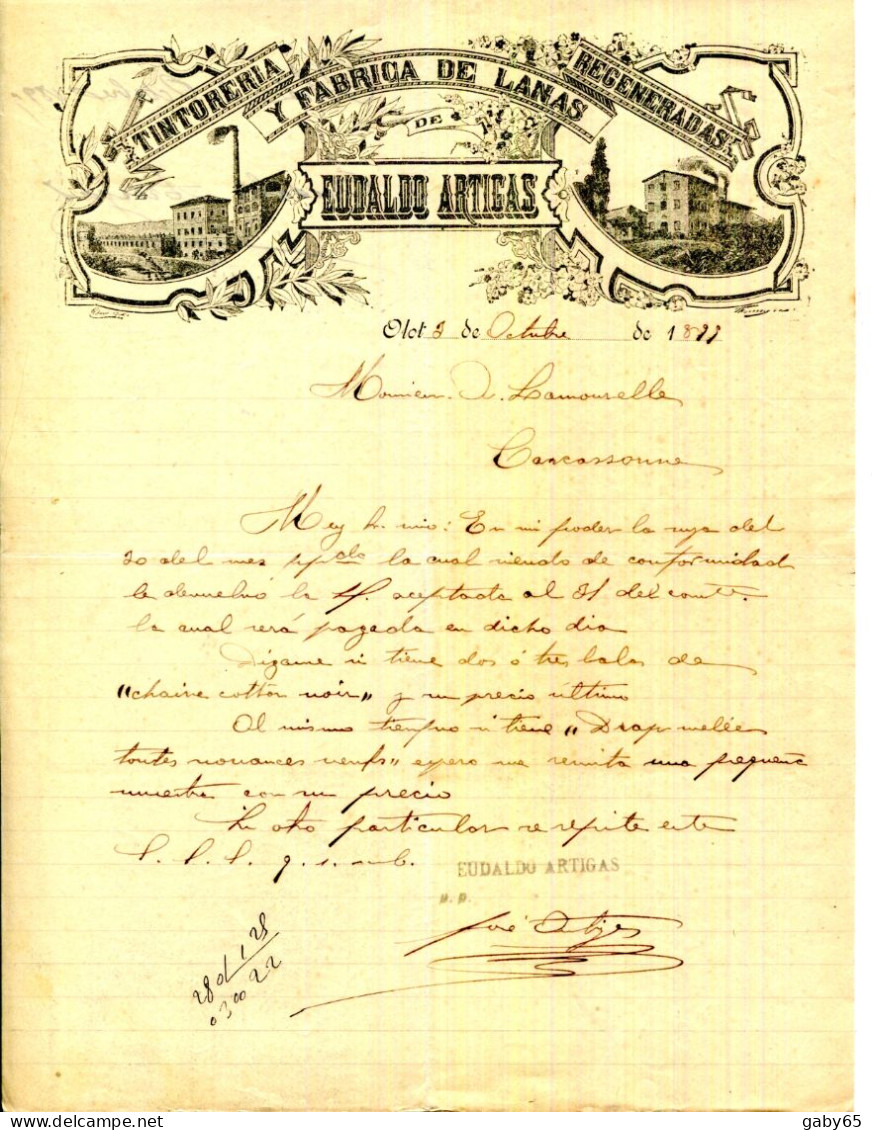 TINTORERIA
Y FABRICA DE LANAS
REGENERADAS
DE
EUDALDO ARTIGAS
Olot 3 de Octubre de 1899
Monsieur A. Lamourelle
Carcassonne
Muy Sr. mio: En mi poder la suya del
20 del mes ppdo la cual siendo de conformidad
le devuelvo la L/. aceptada al 31 del corrte.
la cual será pagada en dicho dia
Digame si tiene dos ó tres balas de
"chaine cotton noir" y su precio último
Al mismo tiempo si tiene "Drap melée
toutes nouances neufs" espero me remita una pequeña
muestra con su precio
Sin otro particular se repite este
S. S. S. q. s. m. b.
EUDALDO ARTIGAS
P. P.
José Artigas
gaby65